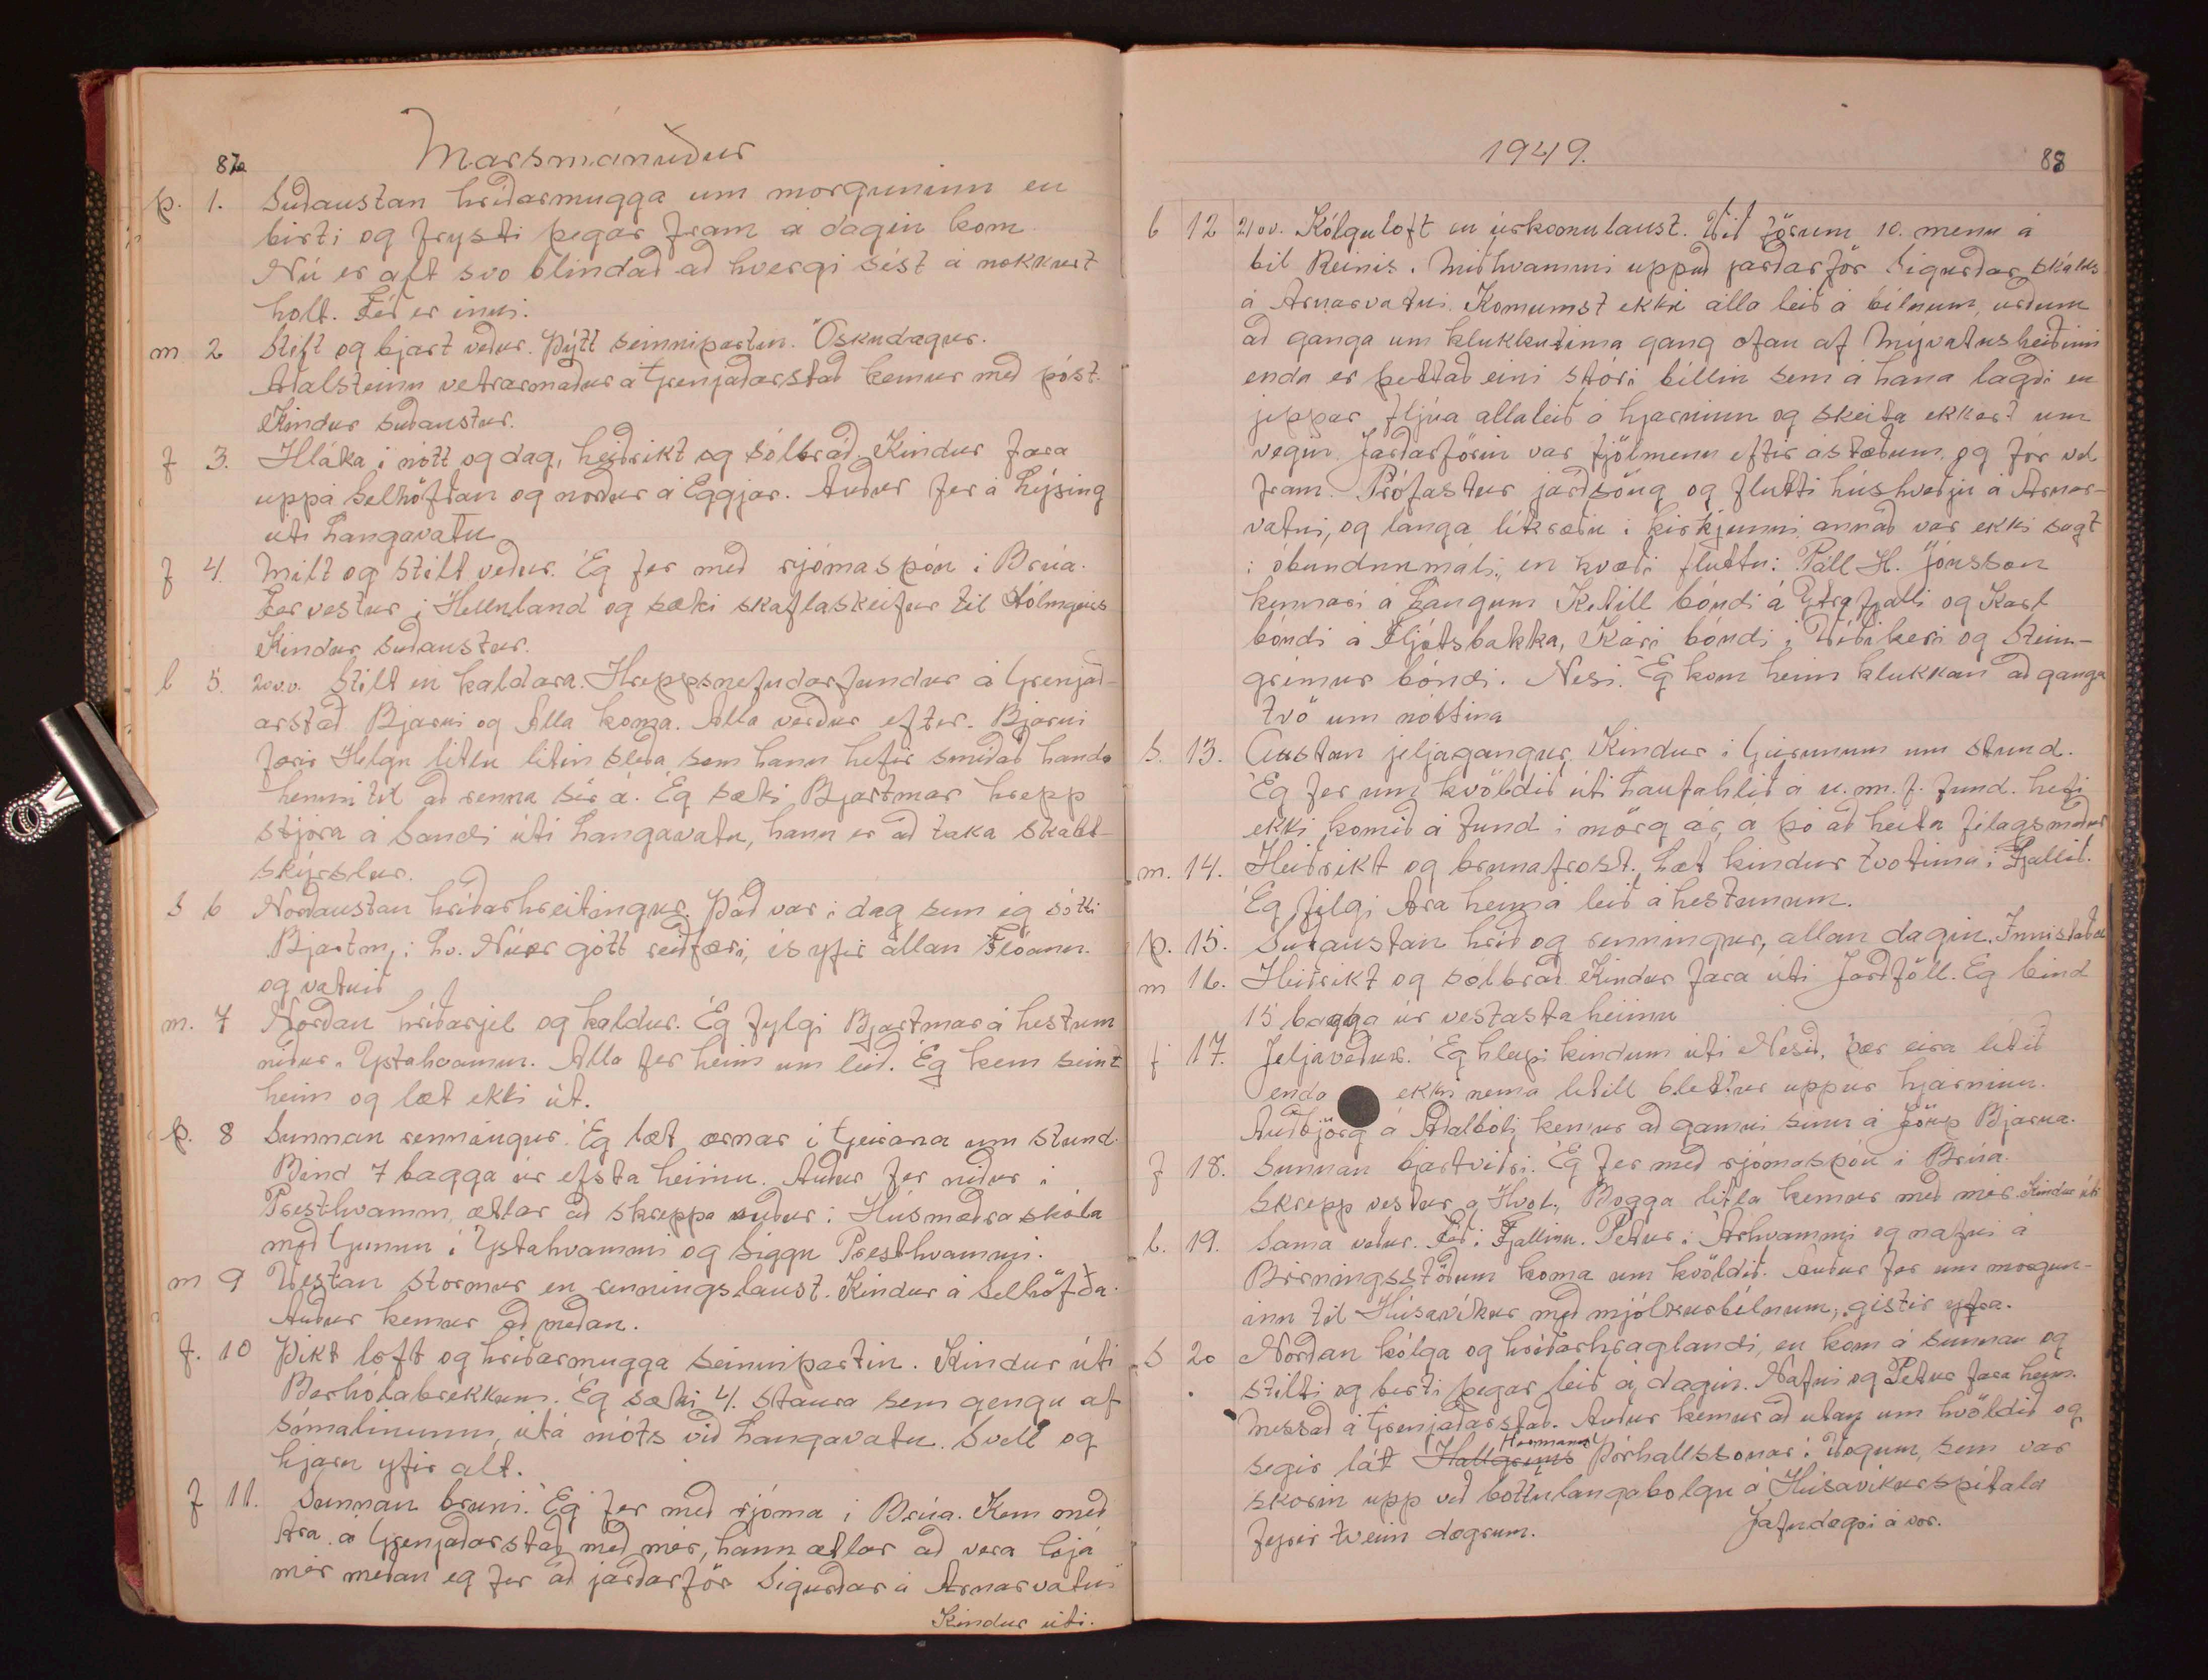 87a
Marsmánuður
þ. 1. Suðaustan hríðarmugga um morguninn en
birti og frysti þegar fram á dagin kom.
Nú er alt svo blindað að hvergi sést á nokkurt
holt. Féð er inni.
m 2 Stilt og bjart veður. Þýtt seinnipartin. Öskudagur.
Aðalsteinn vetrarmaður á Grenjaðarstað kemur með póst.
Kindur suðaustur.
f 3. Hláka í nótt og dag, heiðríkt og sólbráð. Kindur fara
uppá Selhöfðan og norður á Eggjar. Auður fer á Lýsing
úti Langavatn
f 4. Milt og stilt veður. Ég fer með rjómaspón í Brúa.
Fer vestur í Helluland og sæki skaflaskeifur til Hólmgeirs
Kindur suðaustur.
l 5. 20 v.v. Stilt en kaldara. Hreppsnefndarfundur á Grenjað-
arstað Bjarni og Alla koma. Alla verður eftir. Bjarni
færir Helgu litlu lítin sleða sem hann hefir smíðað handa
henni til að renna sér á. Ég sæki Bjartmar hrepp
stjóra á Sandi úti Langavatn, hann er að taka skatt-
skýrslur.
S 6 Norðaustan hríðarhreitingur. Það var í dag sem ég sótti
Bjartm. í Lv. Nú er gótt reiðfæri, ís yfir allan Flóann.
og vatnið
m. 7 Norðan hríðarjel og kaldur. Ég fylgi Bjartmar á hestum
niður í Ystahvamm. Alla fer heim um leið. Ég kem seint
heim og læt ekki út.
þ. 8 Sunnan renningur. Ég læt ærnar í Geirana um stund.
Bind 7 bagga úr efsta heiinu. Auður fer niður í
Presthvamm, ætlar að skreppa suður í Húsmæðra skóla
með Gunnu í Ystahvammi og Siggu Presthvammi.
m 9 Vestan stormur en renningslaust. Kindur á Selhöfða.
Auður kemur að neðan.
f. 10 Þikt loft og hríðarmugga seinnipartin. Kindur úti
Berhólabrekkum. Ég sæki 4. staura sem gengu af
símalínunni, útá móts við Langavatn. Svell og
hjarn yfir alt.
f 11. Sunnan bruni. Ég fer með rjóma í Brúa. Kem með
Ara á Grenjaðarstað með mér, hann ætlar að vera hjá
mér meðan ég fer að jarðarför Sigurðar á Arnarvatni
Kindur úti.
1949.
88
l 12 21 v.v. Kólguloft en úrkomulaust. Við förum 10. menn á
bíl Reinis í Miðhvammi uppað jarðarför Sigurðar skálds
á Arnarvatni. Komumst ekki alla leið á bílnum, urðum
að ganga um klukkutíma gang ofan af Mývatnsheiðinni
enda er þettað eini stóri bíllin sem á hana lagði en
jeppar fljúa allaleið á hjarninu og skeita ekkert um
vegin. Jarðarförin var fjölmenn eftir ástæðum, og fór vel
fram. Prófastur jarðsöng og flutti húskveðju á Arnar-
vatni, og langa líkræðu í kirkjunni annað var ekki sagt
í óbundnumáli, en kvæði fluttu: Páll H. Jónsson
kennari á Laugum Ketill bóndi á Ytrafjalli og Karl
bóndi á Fljótsbakka, Kári bóndi í Víðikeri og Stein-
grímur bóndi í Nesi. Ég kom heim klukkan að ganga
tvö um nóttina
S. 13. Austan jeljagangur. Kindur í Geirunum um stund.
Ég fer um kvöldið úti Laufahlíð á u.m.f. fund. hefi
ekki komið á fund í mörg ár, á þó að heita félagsmaður
m. 14. Heiðríkt og brunafrost. Læt kindur tvotíma í Fjallið.
Ég fylgi Ara heim á leið á hestunum.
þ. 15. Suðaustan hríð og renningur, allan dagin. Innistaða
m 16. Heiðríkt og sólbráð Kindur fara úti Jarðföll. Ég bind
15 bagga úr vestasta heiinu
f 17. Jeljaveður. Ég hleypi kindum úti Nesið, þær eira lítið
enda ekki nema lítill blettur uppúr hjarninu.
Auðbjörg á Aðalbóli kemur að gamni sínu á Jörp Bjarna.
f 18. Sunnan bjartviðri. Ég fer með rjómaspón í Brúa.
Skrepp vestur á Hvol, Bogga litla kemur með mér. Kindur úti
l. 19. Sama veður. Féð í Fjallinu. Pétur í Árhvammi og nafni á
Birningsstöðum koma um kvöldið. Auður fer um morgun-
inn til Húsavíkur með mjólkurbílnum, gistir ytra.
S 20 Norðan kólga og hríðarhraglandi, en kom á sunnan og
stilti og birti þegar leið á dagin. Nafni og Pétur fara heim.
Messað á Grenjaðarstað. Auður kemur að utan um kvöldið og
Hermanns
segir lát Hallgríms Þórhallssonar í Vogum, sem var
skorin upp við bottnlangabólgu á Húsavíkurspítala
fyrir tveim dægrum. Jafndægri á vor.